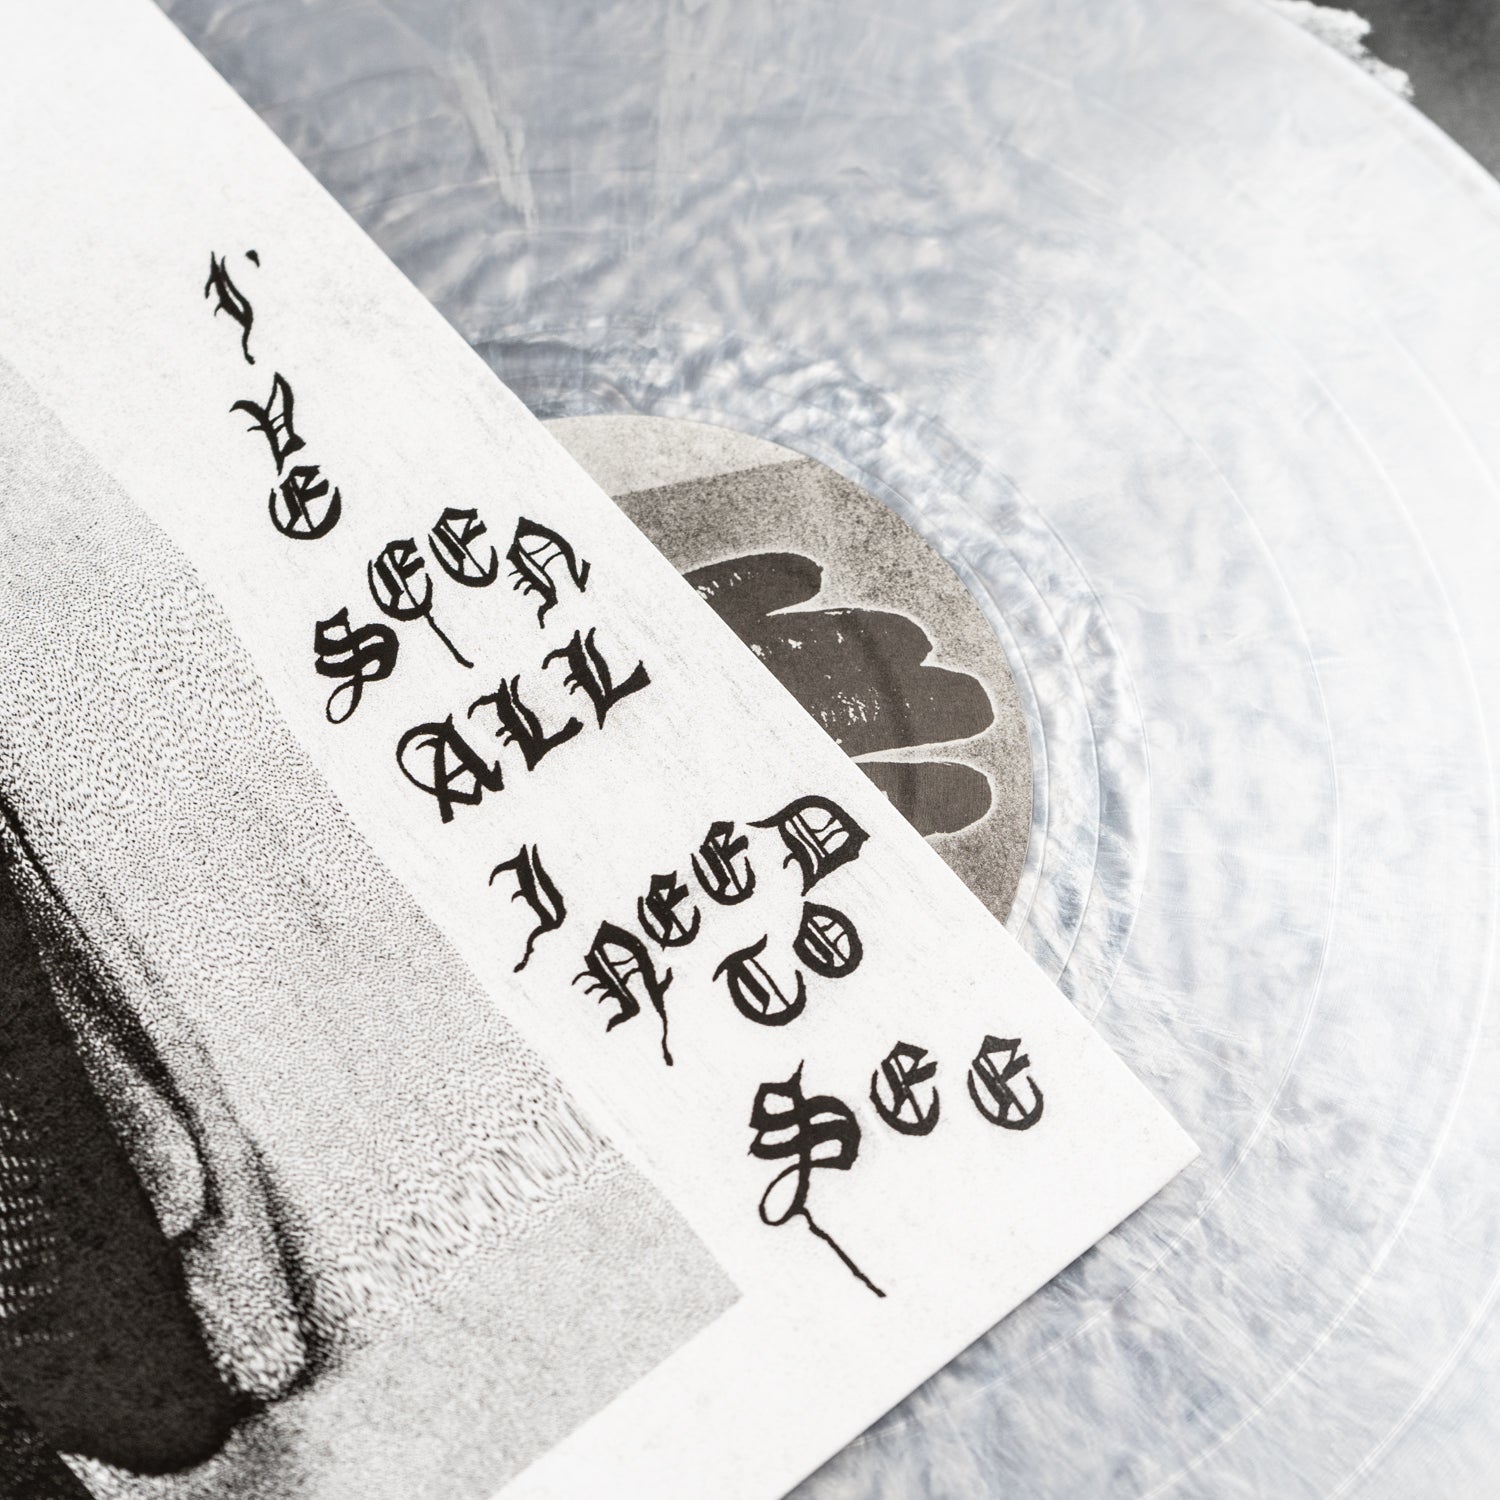 I'VE
SEEN
ALL
I NEED
TO
SEE